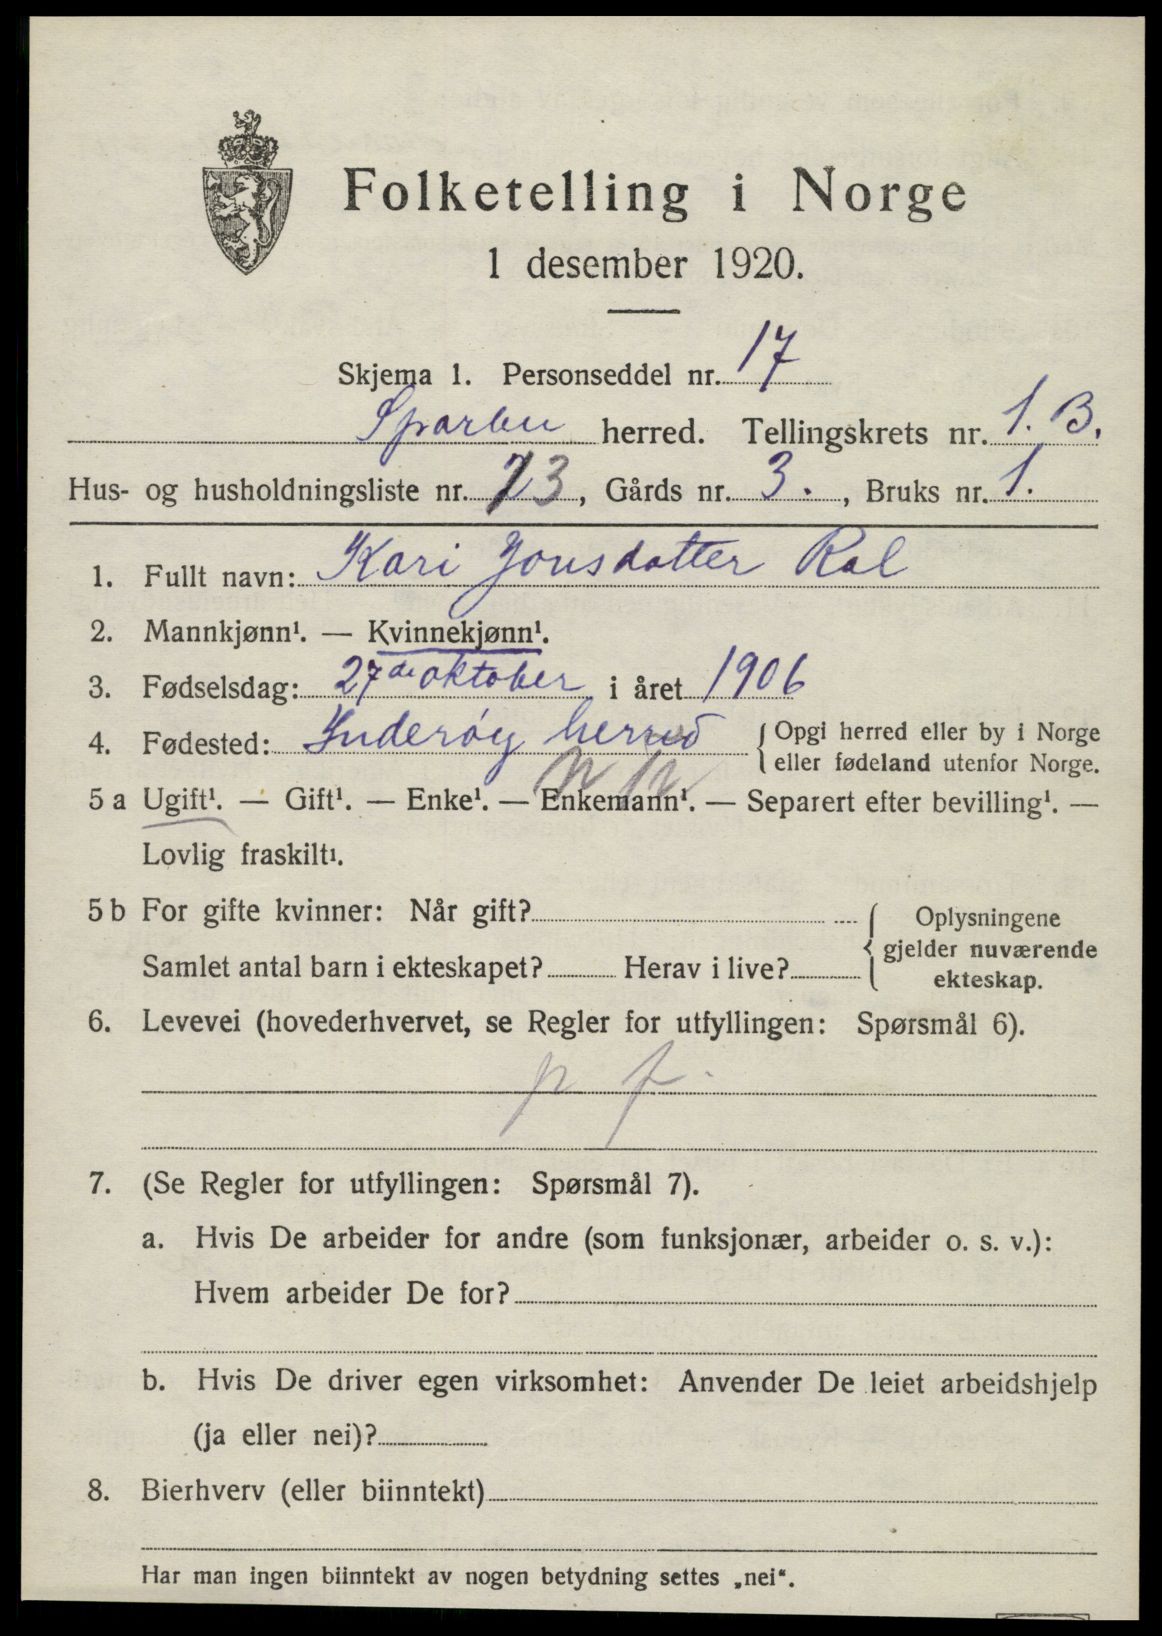 Folketelling i Norge
1 desember 1920.
Skjema 1. Personseddel nr. 17
Sparbu herred. Tellingskrets nr. 1. B.
Hus- og husholdningsliste nr. 13, Gårds nr. 3. , Bruks nr. 1.
1. Fullt navn: Kari Jonsdatter Rol
2. Mannkjønn¹. — Kvinnekjønn¹.
3. Fødselsdag: 27de oktober i året 1906
4. Fødested: Inderøy herred { Opgi herred eller by i Norge
eller fødeland utenfor Norge.
5 a Ugift¹. — Gift¹. — Enke¹. — Enkemann¹. — Separert efter bevilling¹. —
Lovlig fraskilt¹.
5 b For gifte kvinner: Når gift? { Oplysningene
gjelder nuværende
Samlet antal barn i ekteskapet? Herav i live?
ekteskap.
6. Levevei (hovederhvervet, se Regler for utfyllingen: Spørsmål 6).
p f.
7. (Se Regler for utfyllingen: Spørsmål 7).
a. Hvis De arbeider for andre (som funksjonær, arbeider o. s. v.):
Hvem arbeider De for?
b. Hvis De driver egen virksomhet: Anvender De leiet arbeidshjelp
(ja eller nei)?
8. Bierhverv (eller biinntekt)
Har man ingen biinntekt av nogen betydning settes „nei“.